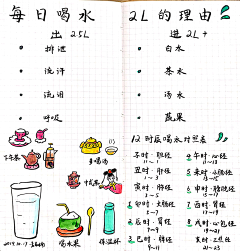 每日喝水 2L的理由
出 2.5L
进 2L+
排泄
白水
流汗
茶水
汤水
呼吸
蔬果
12时辰喝水对照表
下午茶
多喝汤
喝水果
保温杯
子时·胆经
丑时·肝经
1~3
寅时·肺经
3~5
卯时·大肠经
5~7
辰时·胃经
7~9
巳时·脾经
午时·心经
11~13
未时·小肠经
13~15
申时·膀胱经
酉时·肾经
17~19
戌时·心包经
亥时·三焦经